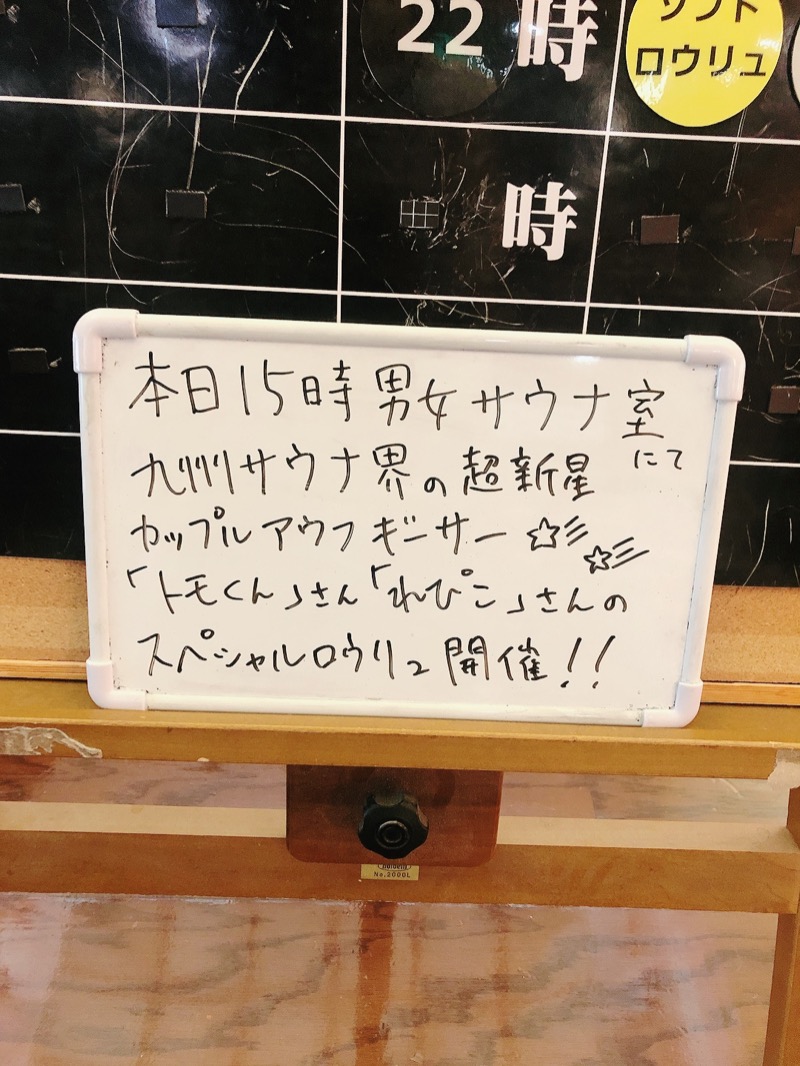 22時
ソフト
ロウリュ
時
本日15時男女サウナ室
にて
九州サウナ界の超新星
カップルアウフギーサー☆彡☆彡
「トモくん」さん「れぴこ」さんの
スペシャルロウリュ開催!!
No.2000L